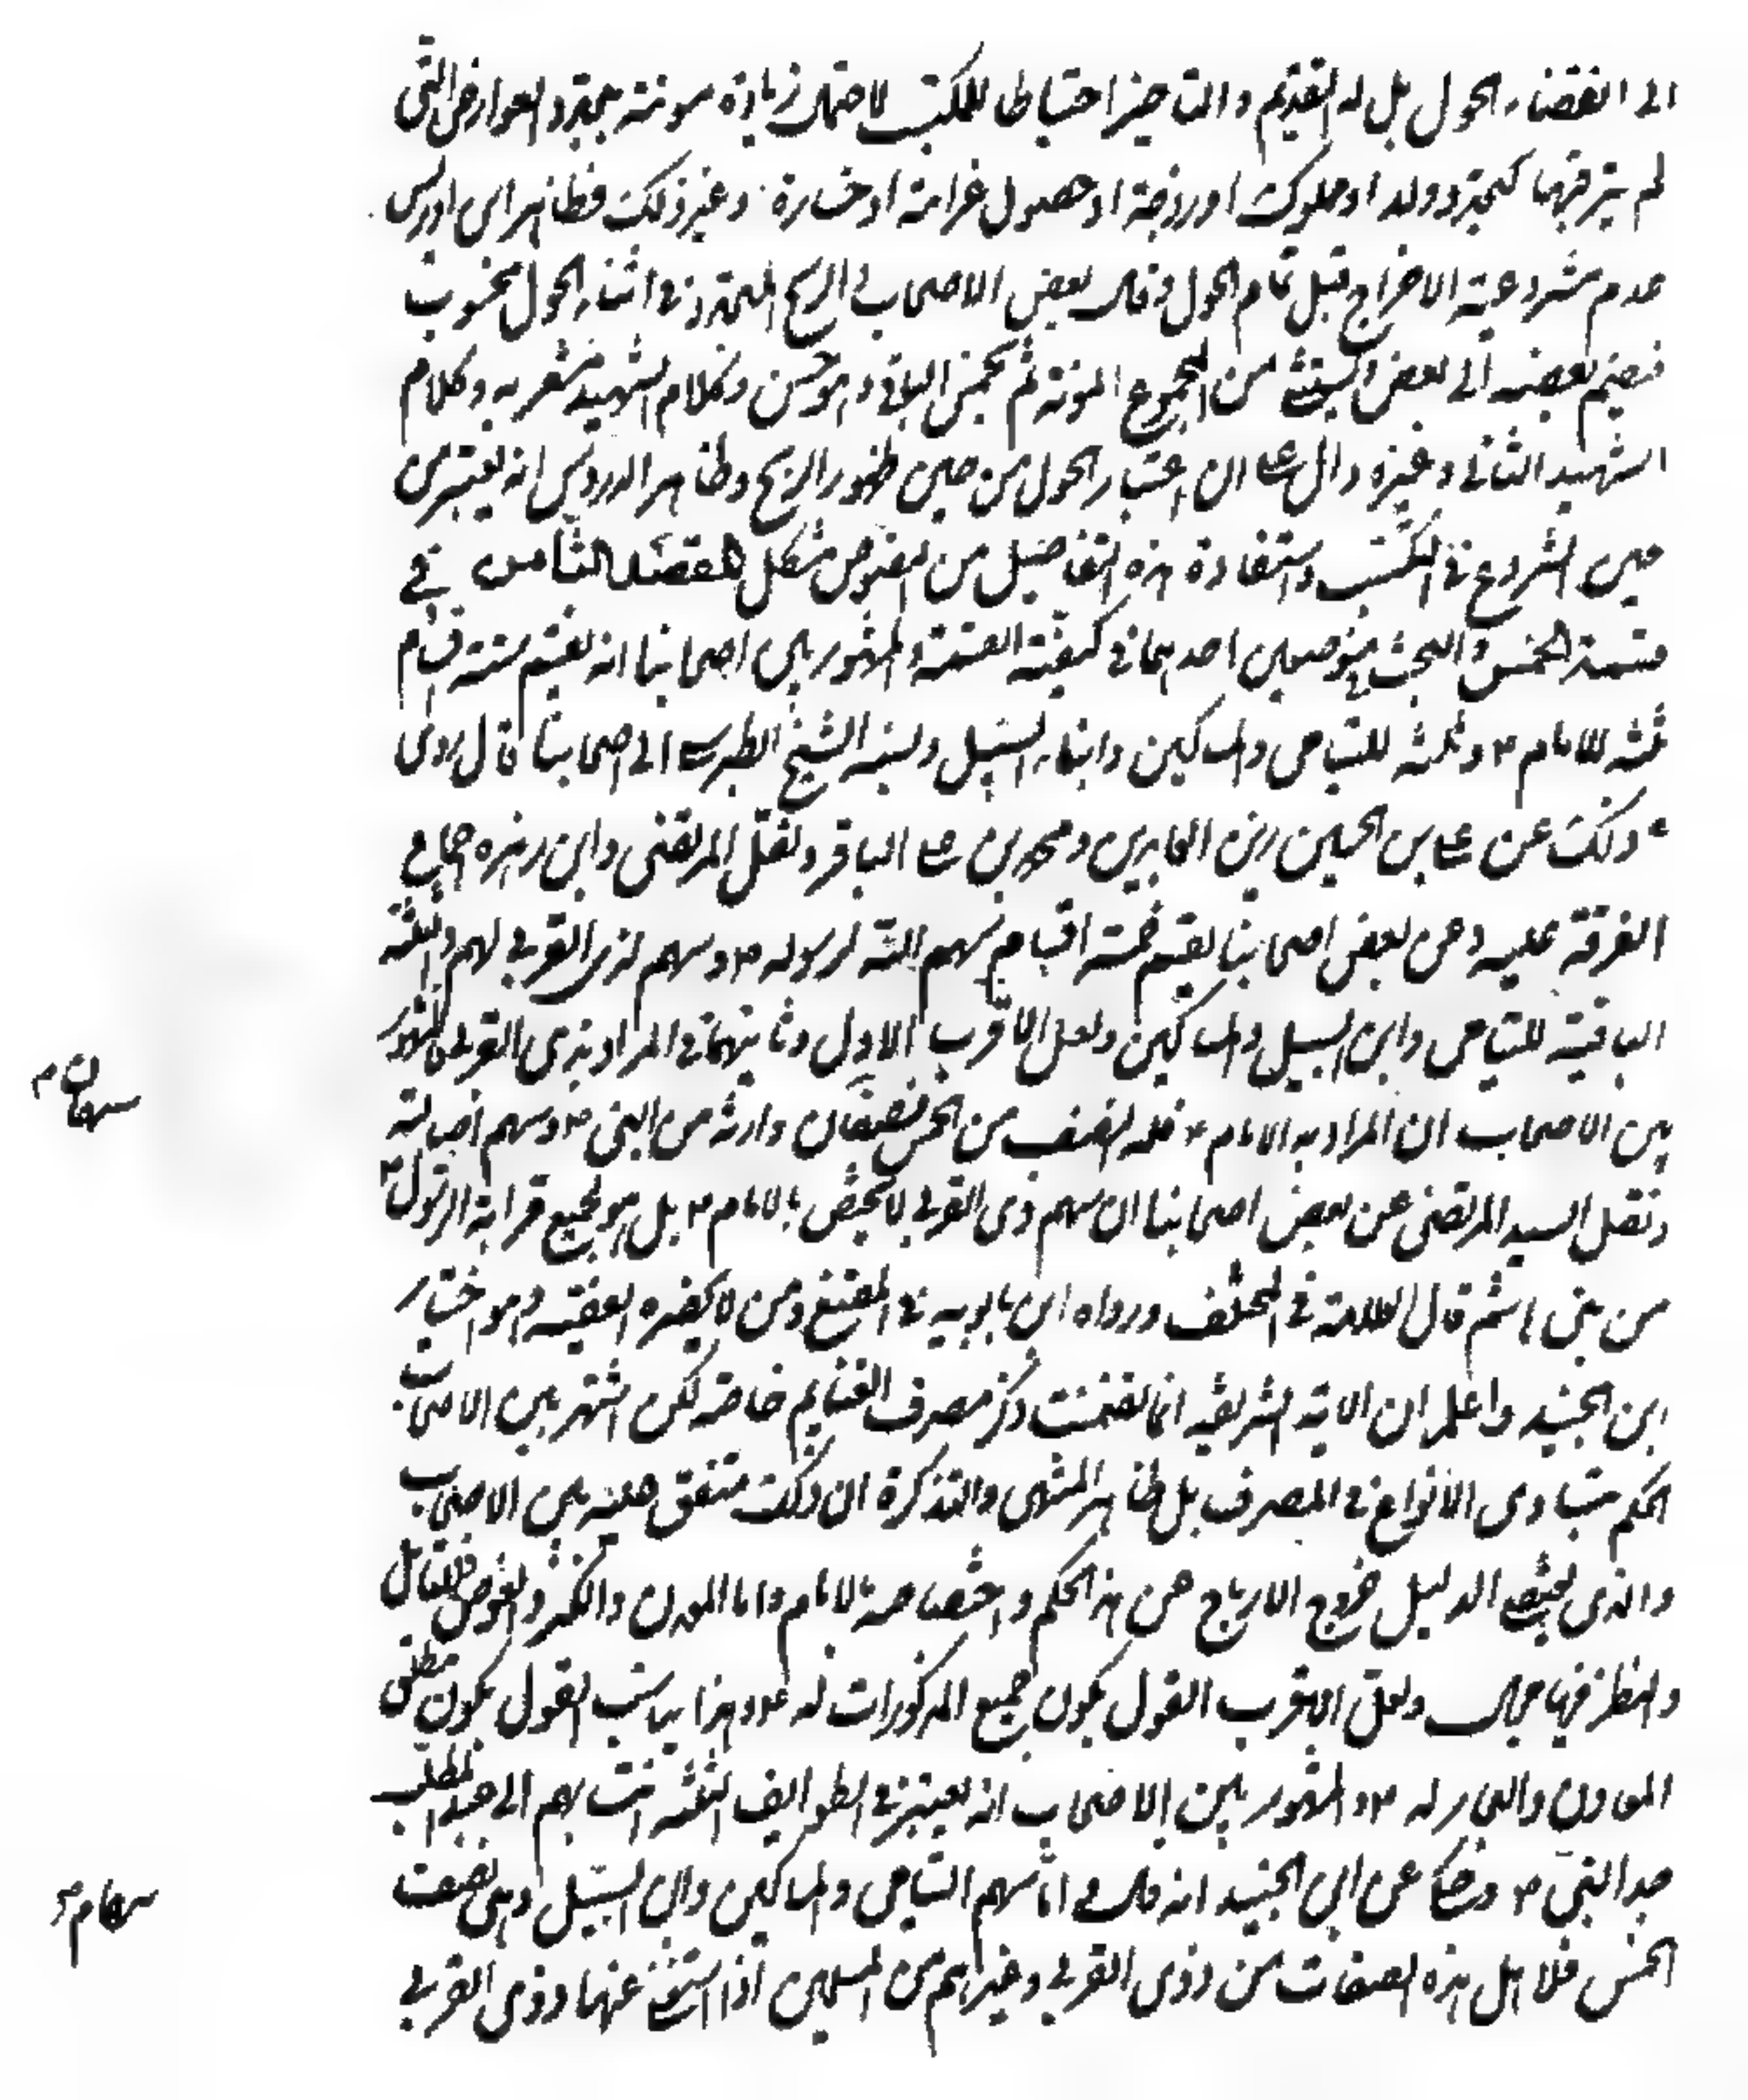 الى انقضاء الحول بل له التقديم والتاخير احتياطا للمكتسب لاحتمال زيادة مونته بتجدد العوارض التي
لم يترقبها كتجدد ولد او مملوك او زوجة او حصول غرامة او خسارة وغير ذلك فظاهر ابن ادريس
عدم مشروعية الاخراج قبل تمام الحول وقال بعض الاصحاب في الربح المتجدد في اثناء الحول محسوب
فيضم بعضه الى بعض ويستثنى من المجموع المونة ثم يخمس الباقي وهو حسن وكلام الشهيد مشعر به وكلام
الشهيد الثاني وغيره دال على ان اعتبار الحول من حين ظهور الربح وظاهر الدروس انه يعتبر من
حين الشروع في التكسب واستفادة هذه التفاصيل من النصوص مشكل المقصد الثامن في
قسمة الخمس والبحث في موضعين احدهما في كيفية القسمة والمشهور بين اصحابنا انه يقسم ستة اقسام
ثلثه للامام ع وثلثه لليتامى والمساكين وابناء السبيل ونسبه الشيخ الطبرسي الى اصحابنا قال وروى
ذلك عن علي بن الحسين زين العابدين ومحمد بن علي الباقر ونقل المرتضى وابن زهرة اجماع
الفرقة عليه وعن بعض اصحابنا يقسم خمسة اقسام سهم الله لرسوله ص وسهم لذي القربى لهم والثلثة
الباقية لليتامى وابن السبيل والمساكين ولعل الاقرب الاول وثانيهما في المراد بذي القربى المشهور
بين الاصحاب ان المراد به الامام ع فله النصف من الخمس نصفان وارثة من النبي ص وسهم اصالة
سهمان م
ونقل السيد المرتضى عن بعض اصحابنا ان سهم ذي القربى لا يختص بالامام ع بل هو لجميع قرابة الرسول ص
من بني هاشم قال العلامة في المختلف ورواه ابن بابويه في المقنع ومن لا يحضره الفقيه وهو اختيار
ابن الجنيد واعلم ان الاية الشريفه انما تضمنت ذكر مصرف الغنايم خاصة لكن اشتهر بين الاصحاب
الحكم بتساوى الانواع في المصرف بل ظاهر المنتهى والتذكرة ان ذلك متفق عليه بين الاصحاب
والذي يقتضيه الدليل خروج الارباح عن هذا الحكم واختصاصه بالامام واما المعدن والكنز والغوص فللتامل
والنظر فيها مجال ولعل الاقرب القول بكون جميع المذكورات له ع وهذا يناسب القول بكون مطلق
المعادن والبحار له ع والمشهور بين الاصحاب انه يعتبر في الطوايف الثلثة انتسابهم الى عبد المطلب
جد النبي ص وحكى عن ابن الجنيد انه قال واما سهم اليتامى والمساكين وابن السبيل وهي نصف
سهام م
الخمس فلاهل هذه الصفات من ذوي القربى وغيرهم من المسلمين اذا استغنى عنها ذوي القربى